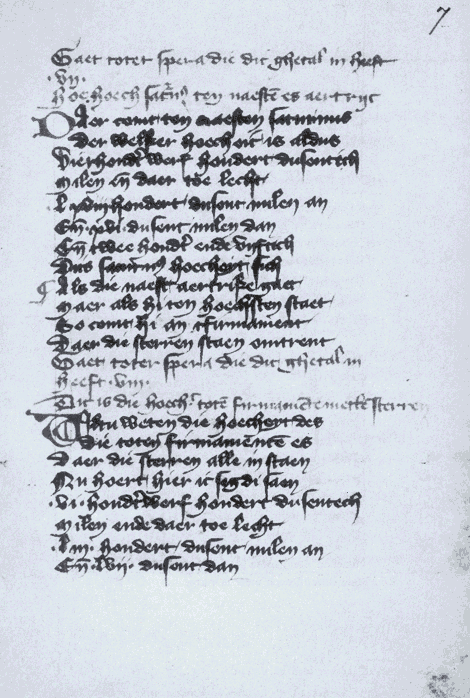 7
Gaet toter spera die dit ghetal in heeft
·vij·
Hoe hoech satñ9 ten naestē es aertrijc
Daer comt ten naesten saturnus
der welker hoecheit is aldus
Vierhondt werf hondert dusentich
Milen eñ daer toe lecht
hondert dusent milen an
Eñ ·xvi· dusent milen dan
Eñ twee hondt ende viftich
Dus hoecheyt sich
Als die naest aertrike gaet
Maer als hi ten hoechsten staet
So comt hi an firmament
Daer die sterren staen omtrent
Gaet toter spera die dit ghetal in
heeft ·viij·
Dit is die hoech totē sterren
Wiltu weten die hoecheyt des
die toten firmamente es
Daer die sterren alle in staen
Nu hoert hier ic seg di saen
·vi· hondt werf hondert dusentech
Milen ende daer toe lecht
·liij· hondert dusent milen an
Eñ ·lvij· dusent dan